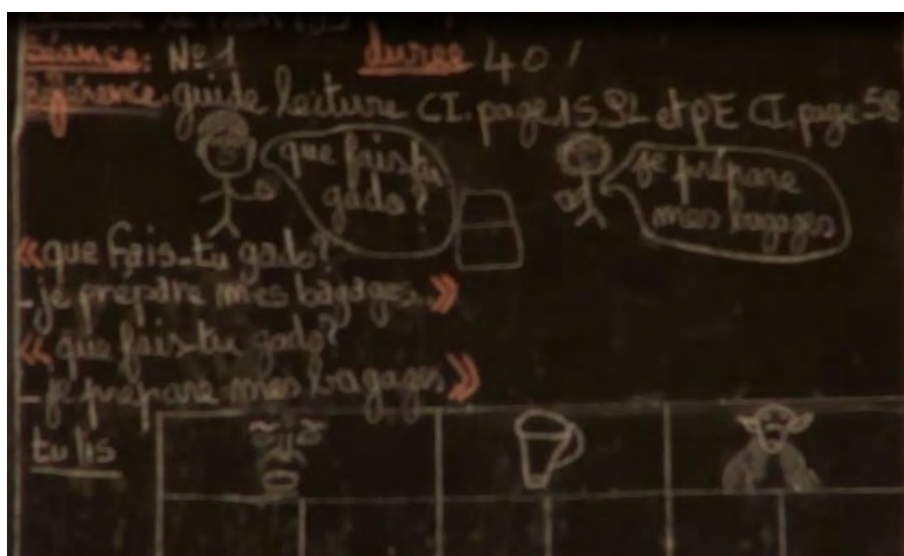 Séance: N°1 durée 40'
Référence: guide lecture CI. page 15 SL et pE CI. page 58
que fais-tu
gado?
je prépare
mes bagages
« que fais-tu gado?
- je prépare mes bagages »
« que fais-tu gado?
- je prépare mes bagages »
tu lis